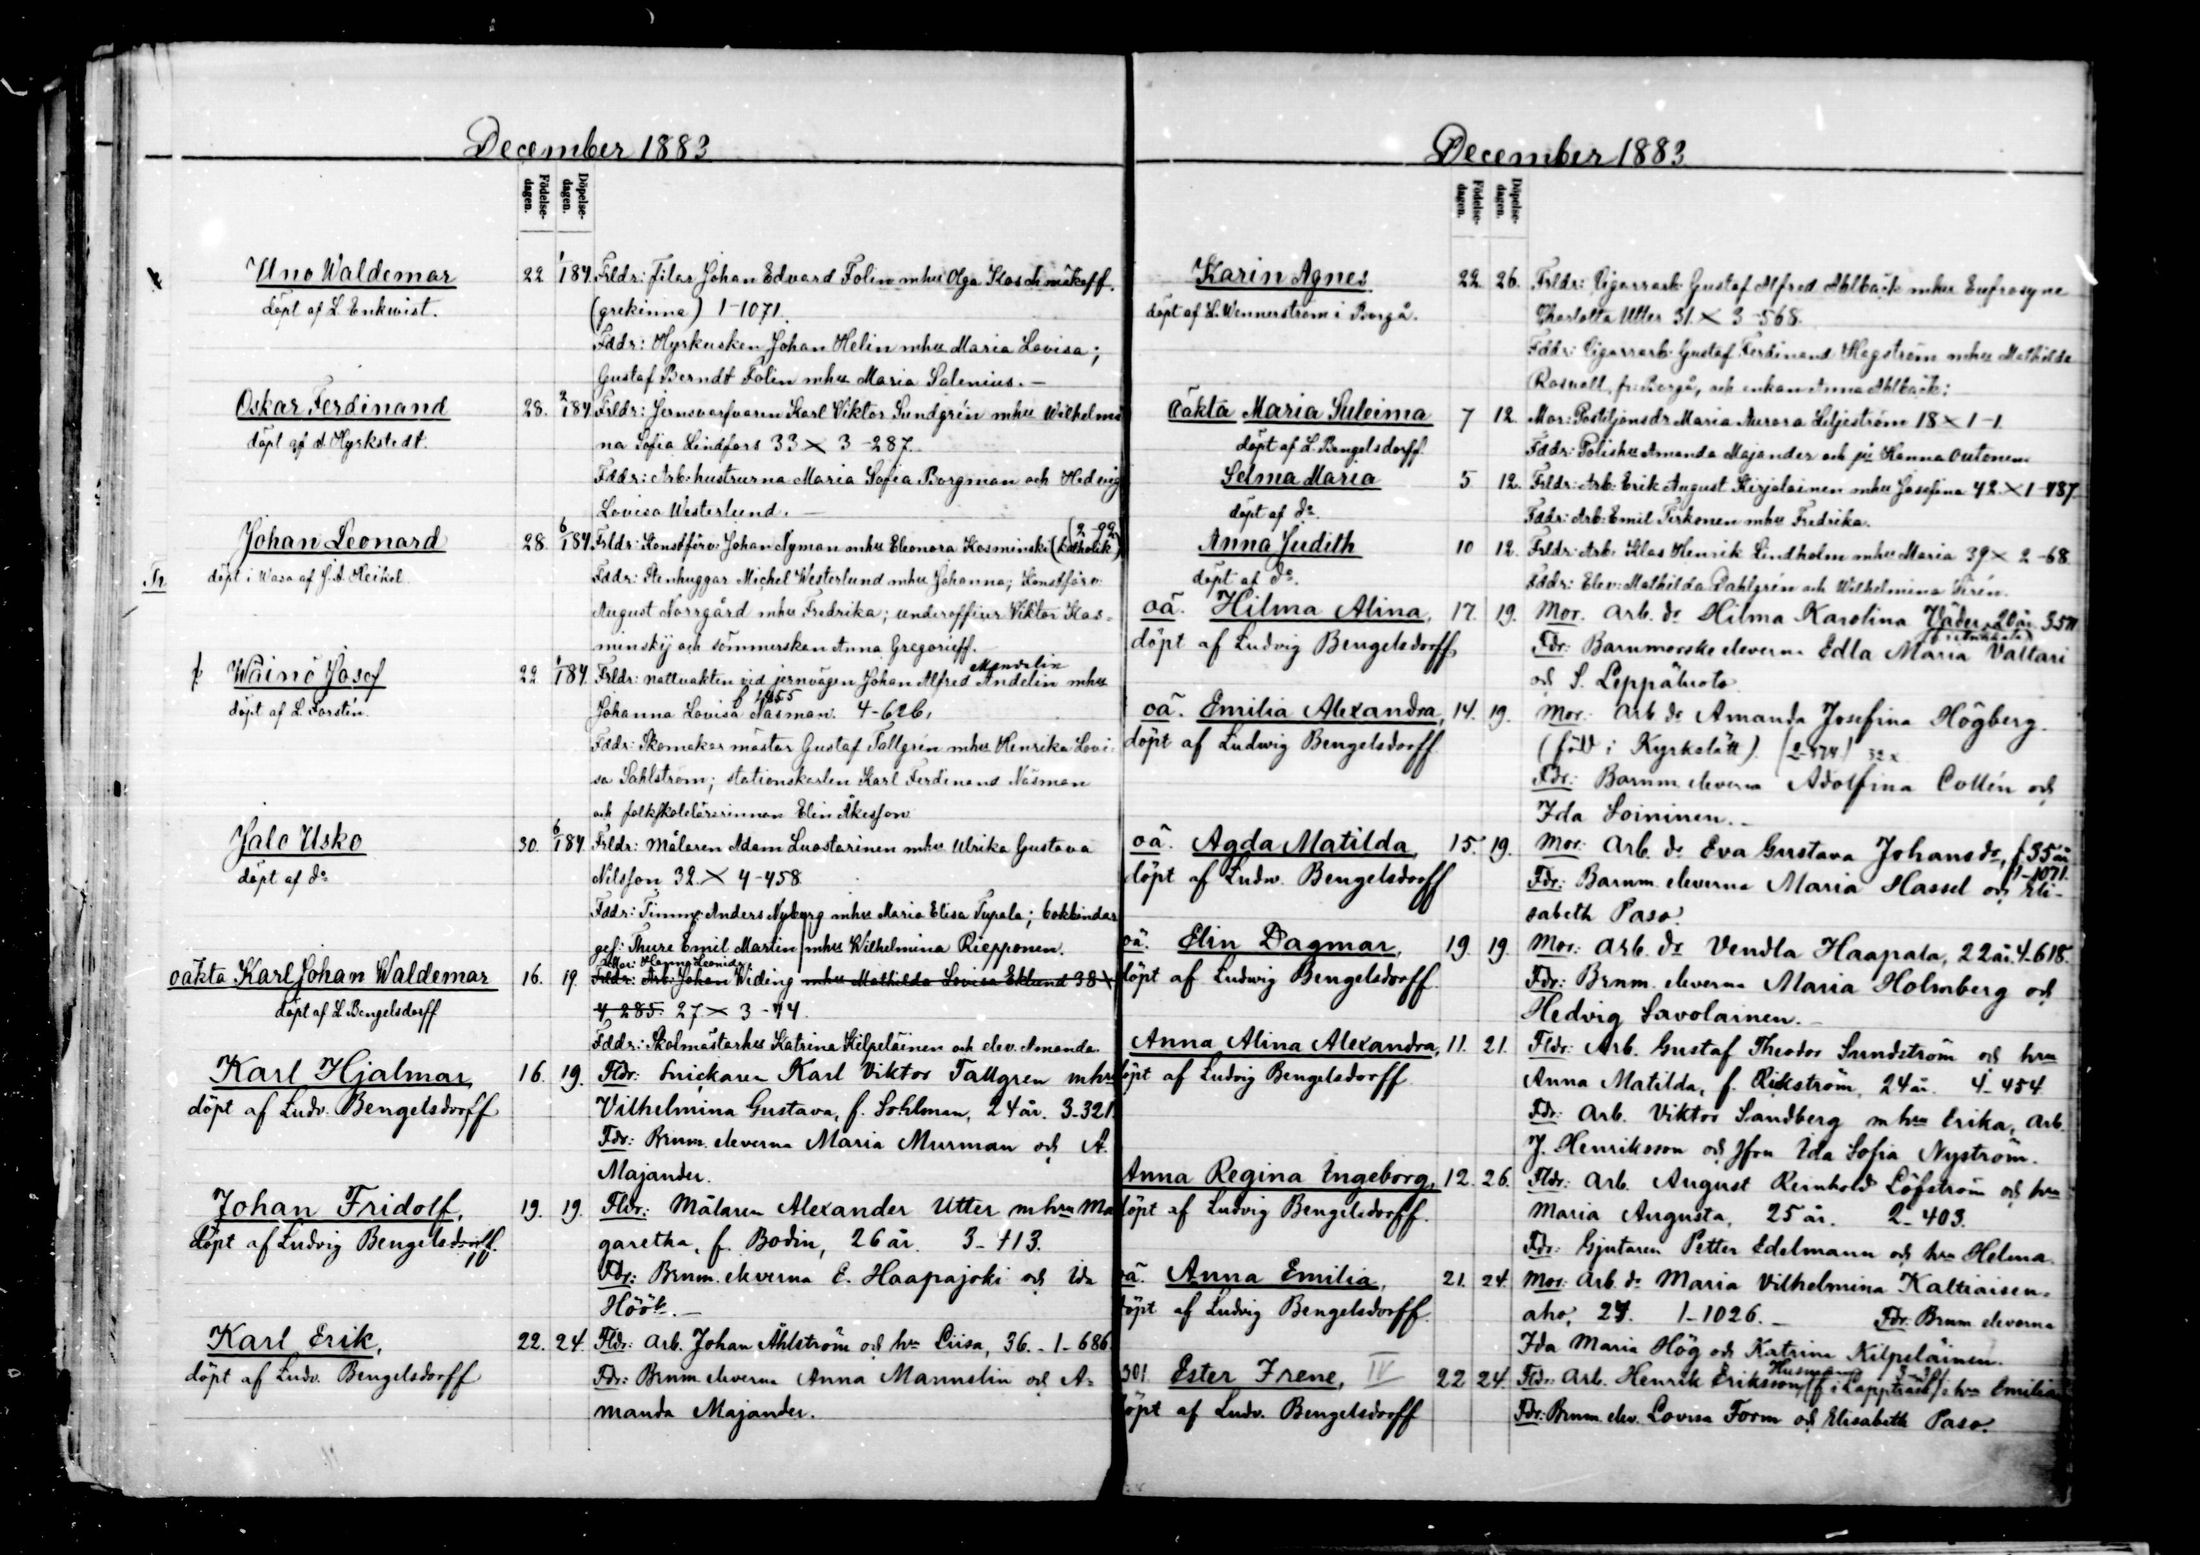 December 1883
Födelse-dagen.
Döpelse-dagen.
Uno Waldemar
döpt af L. Enkvist.
22 1/1 84. Frldr: filar Johan Edvard Folin mhu Olga
(grekinna) 1-1071.
Fddr: Hyrkusken Johan Helin mhu Maria Lovisa;
Gustaf Berndt Folin mhu Maria Salenius. —
Oskar Ferdinand
döpt af A. Hyrkstedt.
28. 2/1 84 Frldr: Jernsvarfvaren Karl Viktor Sundgrén mhu Wilhelmi
na Sofia Lindfors 33 × 3-287.
Fddr: Arb. hustrurna Maria Sofia Borgman och Hedvig
Lovisa Westerlund. —
Johan Leonard
Tr. döpt i Wasa af J. A. Heikel.
28. 6/1 84. Frldr: Konstförv. Johan Nyman mhu Eleonora Kosminski (Katholik)
(2-92)
Fddr: Stenhuggar Michel Westerlund mhu Johanna; Konstförv.
August Norrgård mhu Fredrika; underofficer Viktor Kas-
minskij och sömmerskan Anna Gregorieff.
Wäinö Josef
döpt af L. Forstén.
22 1/1 84. Frldr: nattvakten vid jernvägen Johan Alfred Andelin mhu
Mandelin
Johanna Lovisa Näsman. 4-626,
f 1855
Fddr: Skomakar mästar Gustaf Tallgrén mhu Henrika Lovi-
sa Sahlström; stationskarlen Karl Ferdinand Näsman
och folkskolelärarinnan Elin Åkesson
Jalo Usko
döpt af do
30. 6/1 84 Frldr: Målaren Adam Luostarinen mhu Ulrika Gustava
Nilsson 32. × 4-458
Fddr: Timmr. Anders Nyberg mhu Maria Elisa Tupala; bokbindar
ges: Thure Emil Martin mhu Wilhelmina Riepponen.
oäkta Karl Johan Waldemar
döpt af L Bengelsdorff
16. 19. Frldr: Arb: Johan Widing mhu Mathilda Lovisa Eklund 38 ×
4 285. 27 × 3-44.
Fddr: Skolmästarhu Katrina Kilpeläinen och elev. Amanda.
Karl Hjalmar
döpt af Ludv. Bengelsdorff
16. 19. Fldr: Snickaren Karl Viktor Tallgren mhru
Vilhelmina Gustava, f. Sohlman, 24 år. 3-321
Fdr: Brnm. eleverna Maria Murman och A.
Majander.
Johan Fridolf,
döpt af Ludvig Bengelsdorff.
19. 19. Fldr: Målaren Alexander Utter m hru Ma
garetha, f. Bodin, 26 år. 3-413.
Fdr: Brnm. eleverna E. Haapajoki och Ida
Höök. —
Karl Erik,
döpt af Ludv. Bengelsdorff
22. 24. Fldr: Arb. Johan Åhlström och hru Liisa, 36. - 1-686
Fdr: Brnm eleverna Anna Mannelin och A-
manda Majander.
December 1883
Födelse-dagen.
Döpelse-dagen.
Karin Agnes
döpt af L. Wennerström i Borgå.
22. 26. Frldr: Cigarrarb. Gustaf Alfred Ahlbäck mhu Eufrosyne
Charlotta Utter 31. × 3-568.
Fddr: Cigarrarb. Gustaf Ferdinand Hagström mhu Mathilda
Rosvall, fr. Borgå, och enkan Anna Ahlbäck:
oäkta Maria Suleima
döpt af L. Bengelsdorff.
7 12. Mor: Postiljonsdr Maria Aurora Liljeström 18 × 1-1.
Fddr: Polishu Amanda Majander och Hanna Outonen
Selma Maria
döpt af do.
5 12. Frldr: Arb. Erik August Kirjalainen mhu Josefina 42. × 1-487
Fddr: Arb: Emil Tirkonen mhu Fredrika.
Anna Judith
döpt af do.
10 12. Frldr: Arb. Klas Henrik Lindholm mhu Maria 39 × 2-68
Fddr: Elev: Mathilda Dahlgrén och Wilhelmina Sirén.
oä. Hilma Alina,
döpt af Ludvig Bengelsdorff
17. 19. Mor. Arb. dr Hilma Karolina Väder, 20 år.
Fdr: Barnmorske eleverna Edla Maria Valtari
och S. Leppäluoto.
oä. Emilia Alexandra,
döpt af Ludwig Bengelsdorff
14. 19. Mor: Arb. dr Amanda Josefina Högberg.
(född i Kyrkslätt). 32 ×
Fdr: Barnm. eleverna Adolfina Collén och
Ida Soininen. —
oä. Agda Matilda,
döpt af Ludw. Bengelsdorff
15. 19. Mor: Arb. dr Eva Gustava Johansdr, 35 år
1-1071.
Fdr: Barnm. eleverna Maria Hassel och Eli-
sabeth Paso.
oä. Elin Dagmar,
döpt af Ludwig Bengelsdorff
19. 19. Mor: Arb. dr Vendla Haapala, 22 år. 4-618.
Fdr: Brnm. eleverna Maria Holmberg och
Hedvig Savolainen. —
Anna Alina Alexandra,
döpt af Ludvig Bengelsdorff
11. 21. Fldr: Arb. Gustaf Theodor Sundström och hru
Anna Matilda, f. Rikström, 24 år. 4-454
Fdr: Arb. Viktor Sandberg m hru Erika, Arb.
J. Henriksson och Jfru Ida Sofia Nyström.
Anna Regina Ingeborg,
döpt af Ludvig Bengelsdorff.
12. 26. Fldr: Arb. August Reinhold Löfström och hru
Maria Augusta, 25 år. 2-403.
Fdr: Gjutaren Petter Edelmann och hru Helena.
oä. Anna Emilia,
döpt af Ludvig Bengelsdorff.
21. 24. Mor: Arb. dr Maria Vilhelmina Kaltiaisen-
aho, 27. 1-1026. — Fdr: Brnm eleverna
Ida Maria Hög och Katrina Kilpeläinen.
301. Ester Irene, IV
döpt af Ludv. Bengelsdorff
22 24. Fldr. Arb. Henrik Eriksson (f. i Lappträsk) o hru Emilia
Husman
Fdr: Brnm. elev. Lovisa Form och Elisabeth Paso.